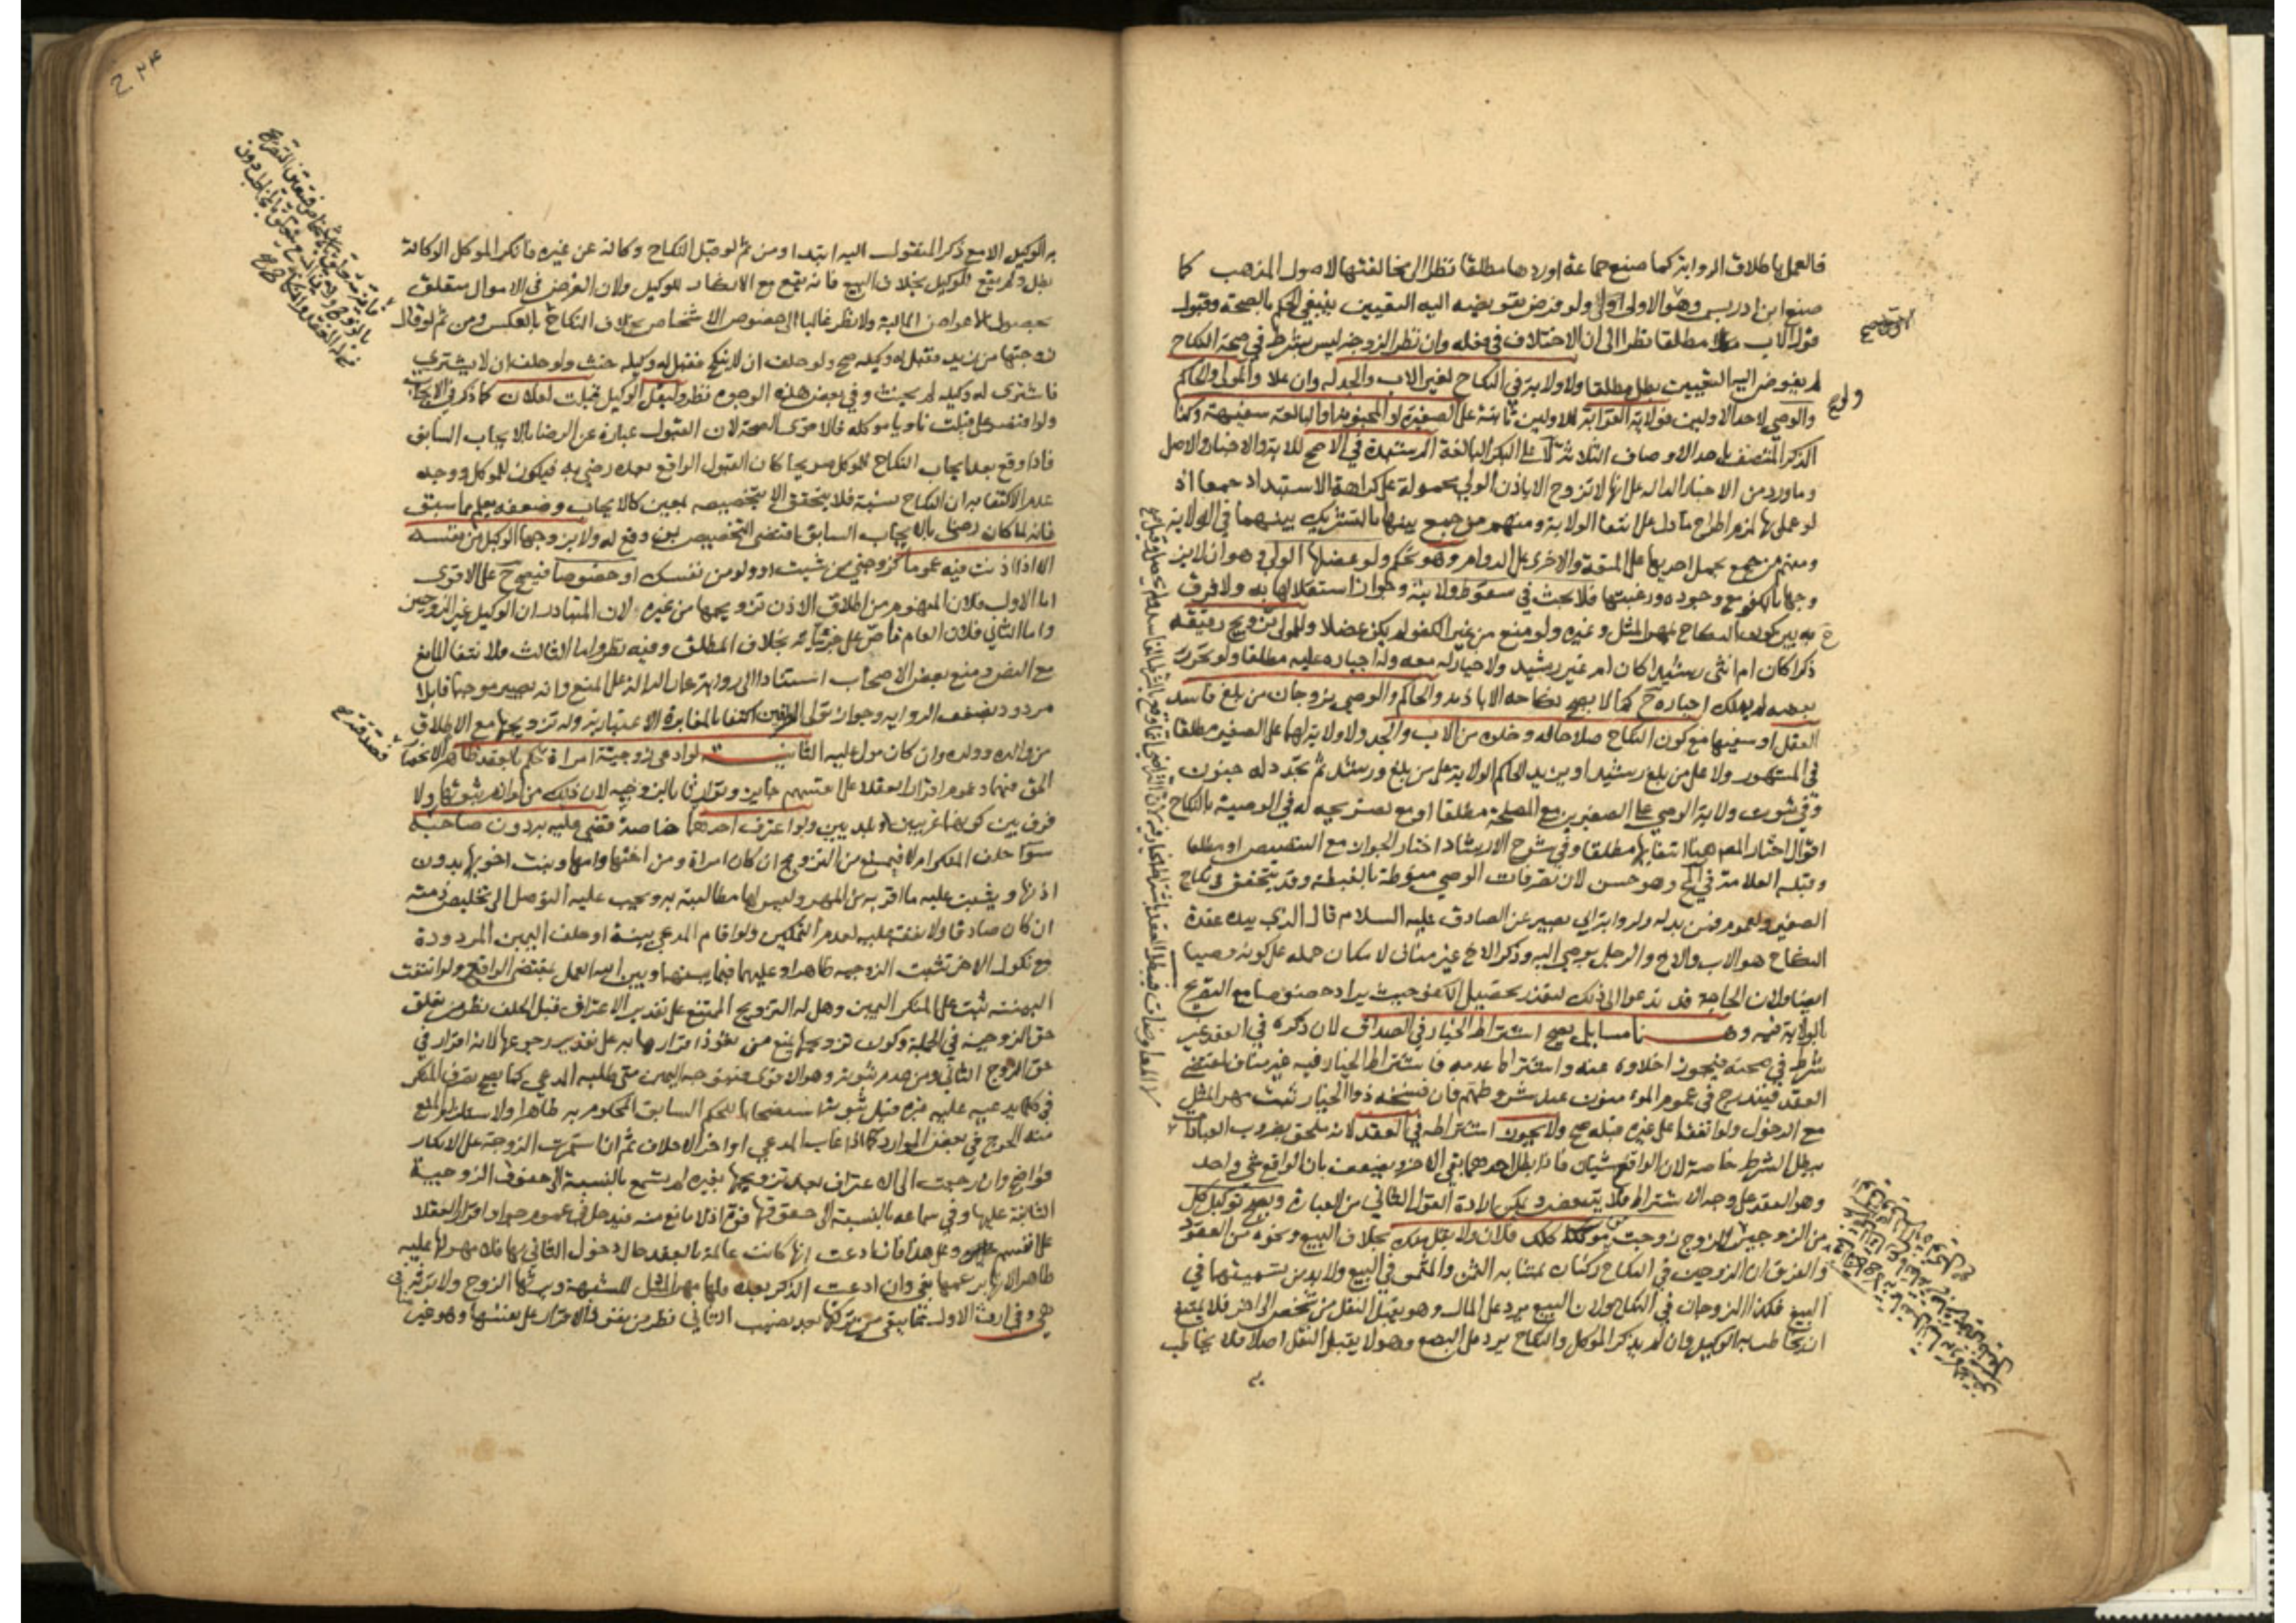 فالعمل باطلاق الرواية كما صنع جماعة اوردها مطلقا نظر الى مخالفتها لاصول المذهب كما
صنع ابن ادريس وهو الاولى اولى ولو فرض تفويضه اليه التعيين ينبغي الحكم بالصحة وقبول
قول الاب مطلقا نظرا الى ان الاختلاف في فعله وان نظر الزوجة ليس بشرط في صحة النكاح
لم يفوض اليه التعيين بطل مطلقا ولا ولاية في النكاح لغير الاب والجد له وان علا والمولى والحاكم
والوصي لاحد الاولين فولاية القرابة للاولين ثابتة على الصغيرة او المجنونة او البالغة سفيهة وكذا
الذكر المتصف باحد الاوصاف الثلاثة لا على البكر البالغة الرشيدة في الاصح للاية والاخبار والاصل
وما ورد من الاخبار الدالة على انها لا تزوج الا باذن الولي محمولة على كراهة الاستبداد جمعا اذ
لو عمل بها لزم اطراح ما دل على انتفا الولاية ومنهم من جمع بينها بالتشريك بينهما في الولاية
ومنهم من جمع بحمل احديهما على المتعة والاخرى على الدوام وهو تحكم ولو عضلها الولي وهو ان لا يز
وجها بالكفو مع وجوده ورغبتها فلا بحث في سقوط ولايته وجواز استقلالها به ولا فرق
به بين كون النكاح بمهر المثل وغيره ولو منع من غير الكفو لم يكن عضلا والمولى تزويج رقيقه
ذكرا كان ام انثى رشيدا كان ام غير رشيد ولا خيار له معه وله اجباره عليه مطلقا ولو تحرر
بعضه لم يملك اجباره ح كما لا يصح نكاحه الا باذنه والحاكم والوصي يزوجان من بلغ فاسد
العقل او سفيها مع كون النكاح صلاحا له وخلوه من الاب والجد ولا ولاية لهما على الصغير مطلقا
في المشهور ولا على من بلغ رشيدا ويزيد الحاكم الولاية على من بلغ ورشد ثم تجدد له جنون
وفي ثبوت ولاية الوصي على الصغيرين مع المصلحة مطلقا او مع تصريحه له في الوصية بالنكاح
اقوال اختار المص هنا انتفاها مطلقا وفي شرح الارشاد اختار الجواز مع التنصيص او مطلقا
وقبله العلامة في المخ وهو حسن لان تصرفات الوصي منوطة بالغبطة وقد يتحقق في نكاح
الصغير ولعموم فمن بدله ولرواية ابي بصير عن الصادق عليه السلام قال الذي بيده عقدة
النكاح هو الاب والاخ والرجل يوصى اليه وذكر الاخ غير مناف لامكان حمله على كونه وصيا
ايضا ولان الحاجة قد تدعوا الى ذلك لتعذر تحصيل الكفو حيث يراد خصوصا مع التصريح
بالولاية فيه وهـــنا مسايل يصح اشتراط الخيار في الصداق لان ذكره في العقد غير
شرط في صحته فيجوز اخلاوه عنه واشتراط عدمه فاشتراط الخيار فيه غير مناف لمقتضى
العقد فيندرج في عموم المؤمنون عند شروطهم فان فسخه ذو الخيار ثبت مهر المثل
مع الدخول ولو اتفقا على غيره قبله صح ولا يجوز اشتراطه في العقد لانه ملحق بضروب العبادات
يبطل الشرط خاصة لان الواقع شيئان فاذا بطل احدهما بقي الاخر ويضعف بان الواقع شي واحد
وهو العقد على وجه الاشتراط فلا يتبعض ويمكن ارادة القول الثاني من العبارة ويصح توكيل كل
من الزوجين للزوج زوجت موكلك فلان ولا يقل منك بخلاف البيع ونحوه من العقود
والفرق ان الزوجين في النكاح ركنان بمثابة الثمن والمثمن في البيع ولا بد من تسميتهما في
البيع فكذا الزوجان في النكاح ولان البيع يرد على المال وهو يقبل النقل من شخص الى اخر فلا يمتنع
ان يخاطب به الوكيل وان لم يذكر الموكل والنكاح يرد على البضع وهو لا يقبل النقل اصلا فلا يخاطب
به
به الوكيل الا مع ذكر المنقول اليه ابتدا ومن ثم لو قبل النكاح وكالة عن غيره فانكر الموكل الوكالة
بطل ولم يقع للوكيل بخلاف البيع فانه يقع مع الانكار للوكيل ولان الغرض في الاموال متعلق
بحصول الاعواض المالية ولا نظر غالبا الى خصوص الاشخاص بخلاف النكاح بالعكس ومن ثم لو قال
زوجتها من زيد فقبل له وكيله صح ولو حلف ان لا ينكح فقبل له وكيله حنث ولو حلف ان لا يشتري
فاشترى له وكيله لم يحنث وفي بعض هذه الوجوه نظر وليقل الوكيل قبلت لفلان كما ذكر في الايجاب
ولو اقتصر على قبلت ناويا موكله فالاقوى الصحة لان القبول عبارة عن الرضا بالايجاب السابق
فاذا وقع بعد ايجاب النكاح للموكل صريحا كان القبول الواقع بعده رضي به فيكون للموكل ووجه
عدم الاكتفا به ان النكاح نسبة فلا يتحقق الا بتخصيصه لمعين كالايجاب وضعفه يعلم مما سبق
فانه لما كان رضى بالايجاب السابق اقتضى التخصيص بمن وقع له ولا يزوجها الوكيل من نفسه
الا اذا اذنت فيه عموما كزوجني ممن شئت او ولو من نفسك او خصوصا فيصح ح على الاقوى
اما الاول فلان المفهوم من اطلاق الاذن تزويجها من غيره لان المتبادر ان الوكيل غير الزوجين
واما الثاني فلان العام ناص على جزئياته بخلاف المطلق وفيه نظر واما الثالث فلانتفا المانع
مع النص ومنع بعض الاصحاب استنادا الى رواية عمار الدالة على المنع وانه يصير موجبا قابلا
مردود بضعف الرواية وجواز تولي الطرفين اكتفا بالمغايرة الاعتبارية وله تزويجها مع الاطلاق
من والده وولده وان كان مولى عليه الثانيــة لو ادعى زوجية امراة حكم بالعقد ظاهرا لانحصار
الحق فيهما وعموم اقرار العقلا على انفسهم جايز وتوارثا بالزوجية لان ذلك من لوازم ثبوتها ولا
فرق بين كونهما غريبين او بلديين ولو اعترف احدهما خاصة قضي عليه به دون صاحبه
سوآ حلف المنكر ام لا فيمنع من التزويج ان كان امراة ومن اختها وامها وبنت اخويها بدون
اذنها ويثبت عليه ما اقر به من المهر وليس لها مطالبته به ويجب عليه التوصل الى تخليص ذمته
ان كان صادقا ولا نفقة عليه لعدم التمكين ولو اقام المدعي بينة او حلف اليمين المردودة
مع نكول الاخر تثبت الزوجية ظاهرا وعليهما فيما بينهما وبين الله العمل بمقتضى الواقع ولو انتفت
البينة ثبت على المنكر اليمين وهل له التزويج الممتنع على تقدير الاعتراف قبل الحلف نظر من تعلق
حق الزوجية في الجملة وكون تزويجها يمنع من نفوذ اقرارها به على تقدير رجوعها لانه اقرار في
حق الزوج الثاني ومن عدم ثبوته وهو الاقوى فيتوجه اليمين متى طلبه المدعي كما يصح تصرف المنكر
في كل ما يدعيه عليه غيره قبل ثبوته استصحابا للحكم السابق المحكوم به ظاهرا ولاستلزام المنع
منه الحرج في بعض الموارد كما اذا غاب المدعي او اخر الاحلاف ثم ان استمرت الزوجة على الانكار
فواضح وان رجعت الى الاعتراف بعد تزويجها بغيره لم يسمع بالنسبة الى حقوق الزوجية
الثابتة عليها وفي سماعه بالنسبة الى حقوقها قوة اذ لا مانع منه فيدخل في عموم جواز اقرار العقلا
على انفسهم وعلى هذا فان ادعت انها كانت عالمة بالعقد حال دخول الثاني بها فلا مهر لها عليه
ظاهرا لانها بزعمها بغي وان ادعت الذكر بعده فلها مهر المثل للشبهة ويرثها الزوج ولا ترثه
هي وفي ارث الاول مما يبقى من تركتها بعد نصيب الثاني نظر من نفوذ الاقرار على نفسها وهو غير